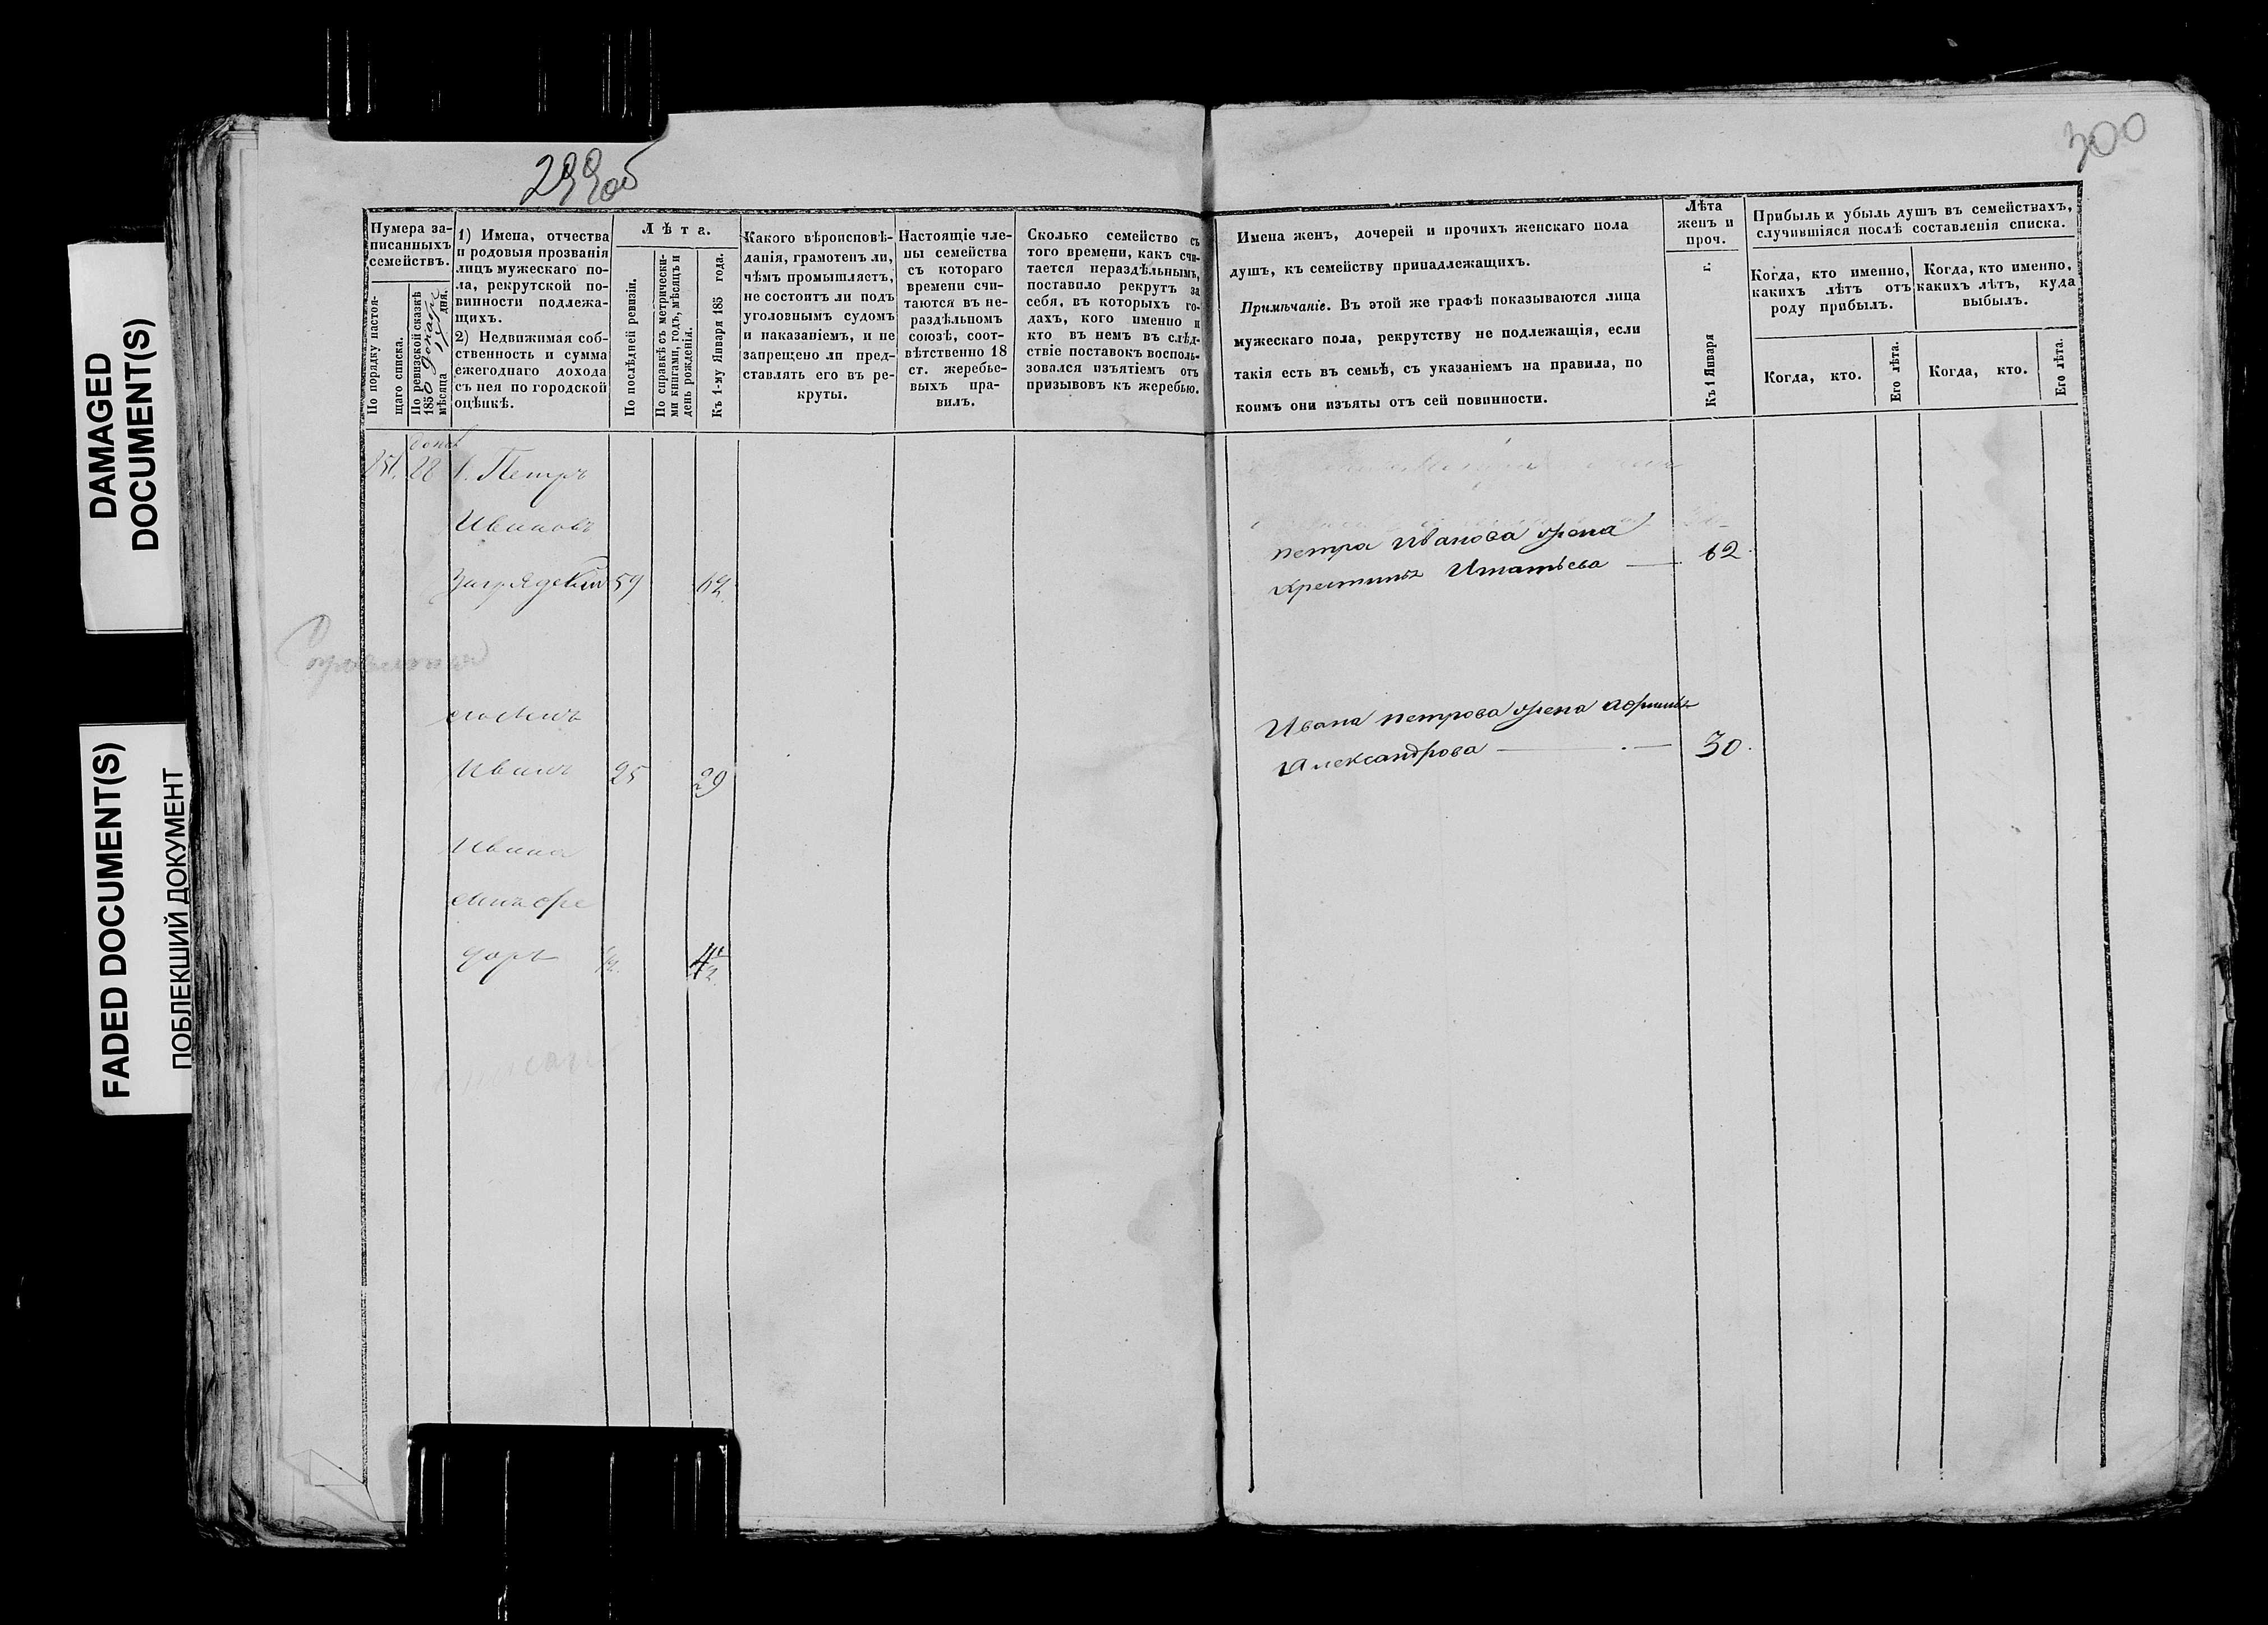 DAMAGED
DOCUMENT(S)
FADED DOCUMENT(S)
ПОБЛЕКШИЙ ДОКУМЕНТ
299об
300
Нумера за-
писанныхъ
семействъ.
По порядку настоя-
щаго списка.
По ревизской сказкѣ
1850
мѣсяца дня.
1) Имена, отчества
и родовыя прозванія
лицъ мужескаго по-
ла, рекрутской по-
винности подлежа-
щихъ.
2) Недвижимая соб-
ственность и сумма
ежегоднаго дохода
съ нея по городской
оцѣнкѣ.
Лѣта.
По послѣдней ревизіи.
По справкѣ съ метрически-
ми книгами, годъ, мѣсяцъ и
день рожденія.
Къ 1-му Января 185 года.
Какого вѣроисповѣ-
данія, грамотенъ ли,
чѣмъ промышляетъ,
не состоитъ ли подъ
уголовнымъ судомъ
и наказаніемъ, и не
запрещено ли пред-
ставлять его въ ре-
круты.
Настоящіе чле-
ны семейства
съ котораго
времени счи-
таются въ не-
раздѣльномъ
союзѣ, соот-
вѣтственно 18
ст. жеребье-
выхъ пра-
вилъ.
Сколько семейство съ
того времени, какъ счи-
тается нераздѣльнымъ,
поставило рекрутъ за
себя, въ которыхъ го-
дахъ, кого именно и
кто въ немъ въ слѣд-
ствіе поставокъ восполь-
зовался изъятіемъ отъ
призывовъ къ жеребью.
Имена женъ, дочерей и прочихъ женскаго пола
душъ, къ семейству принадлежащихъ.
Примѣчаніе. Въ этой же графѣ показываются лица
мужескаго пола, рекрутству не подлежащія, если
такія есть въ семьѣ, съ указаніемъ на правила, по
коимъ они изъяты отъ сей повинности.
Лѣта
женъ и
проч.
Къ 1 Января г.
Прибыль и убыль душъ въ семействахъ,
случившіяся послѣ составленія списка.
Когда, кто именно,
какихъ лѣтъ отъ
роду прибылъ.
Когда, кто именно,
какихъ лѣтъ, куда
выбылъ.
Когда, кто.
Его лѣта.
Когда, кто.
Его лѣта.
28 1. Петръ
Ивановъ
59 62
Иванъ 25 29
Ивана
4 1/2
петра Иванова жена
62
Ивана петрова жена
Александрова 30